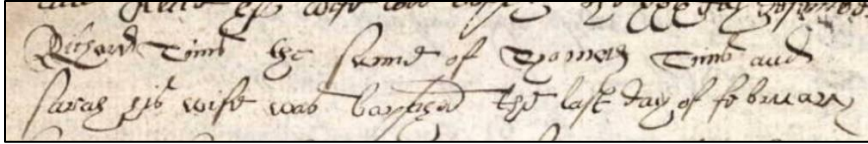 his wife was the day
Richard Tims the sonne of Thomas Tims and
Sarah his wife was baptised the last day of february